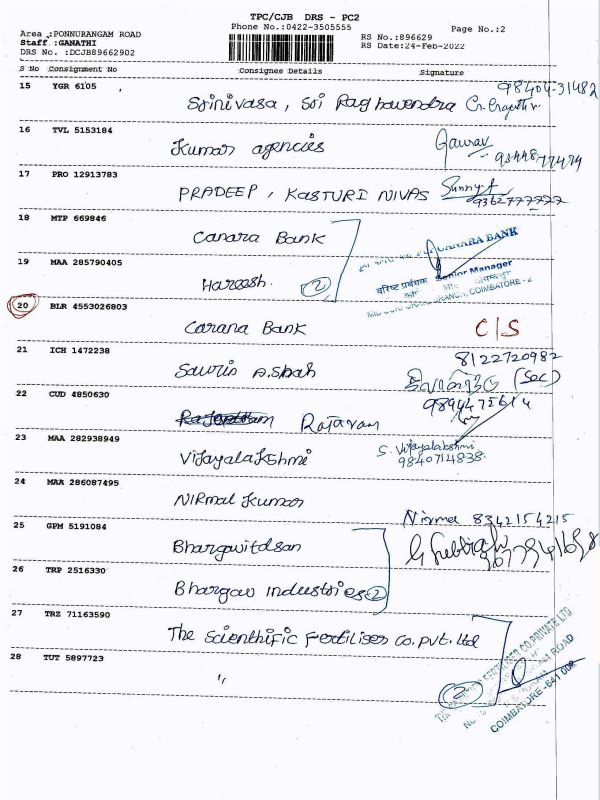 TPC/CJB DRS - PC2
Phone No.:0422-3505555
Page No.:2
Area :PONNURANGAM ROAD
Staff :GANATHI
DRS No. :DCJB89662902
RS No.:896629
RS Date:24-Feb-2022
S No Consignment No Consignee Details Signature
15 YGR 6105 Srinivasa, Sri Raghavendra 98404-31482
16 TVL 5153184 Kumar agencies Gaurav
17 PRO 12913783 PRADEEP, KASTURI NIVAS Sunny
9362777777
18 MTP 669846 Canara Bank
CANARA BANK
19 MAA 285790405 Hareesh. 2
वरिष्ठ प्रबंधक Senior Manager
COIMBATORE - 2
20 BLR 4553026803 Carana Bank C/S
21 ICH 1472238 Sauris A.Shah 8122720982
(Sec)
22 CUD 4850630 Rajaram
23 MAA 282938949 Vijayalakshmi S. Vijayalakshmi
9840714838.
24 MAA 286087495 NIRmal Kumar Nirmal 8342154215
25 GPM 5191084 Bhargavitdsan
26 TRP 2516330 Bhargav industries 2
27 TRZ 71163590 The Scienthific Fertiliser Co. Pvt. Ltd
28 TUT 5897723 " 2
FERTILISER CO. PRIVATE LTD
ROAD
COIMBATORE - 641 002